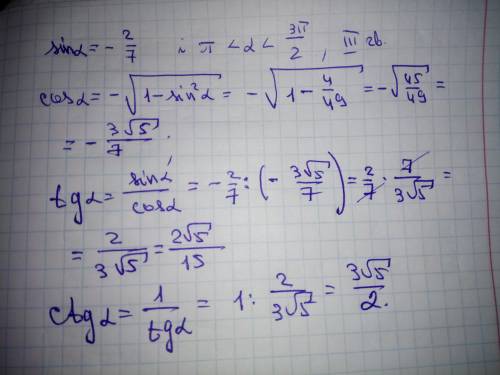 sinα = - 2/7 і π < α < 3π/2, III чв.
cosα = -√(1-sin²α) = -√(1- 4/49) = -√(45/49) =
= - 3√5/7.
tgα = sinα/cosα = - 2/7 : (- 3√5/7) = 2/7 · 7/3√5 =
= 2/3√5 = 2√5/15
ctgα = 1/tgα = 1 : 2/3√5 = 3√5/2.